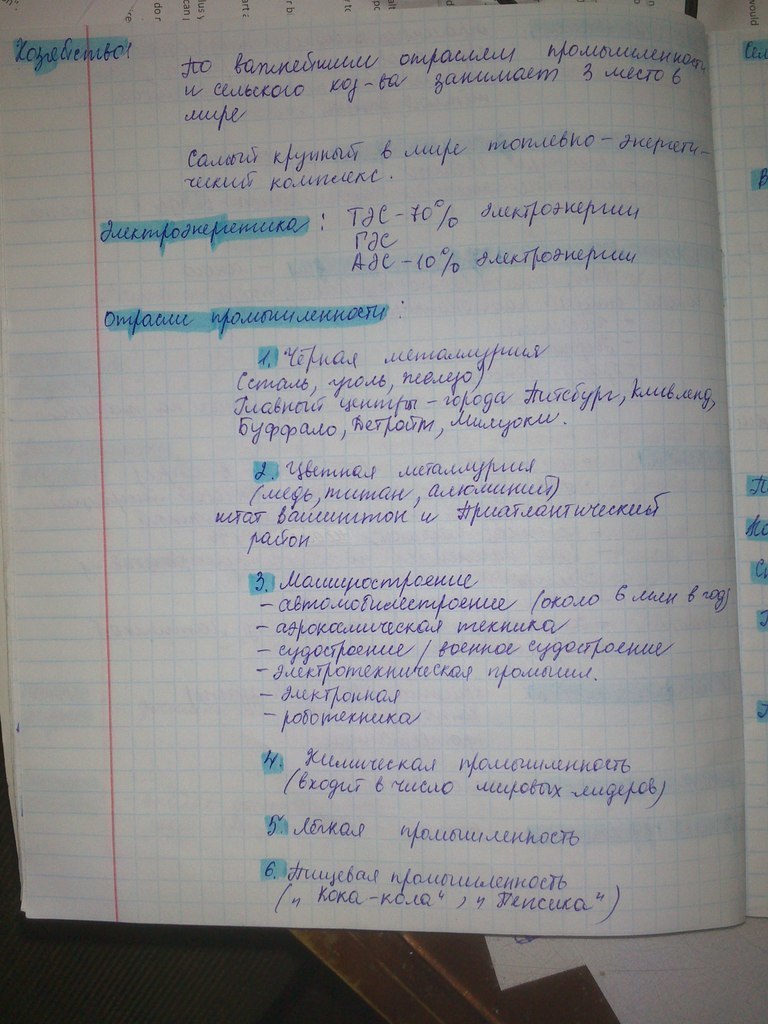 Хозяйство:
По важнейшим отраслям промышленности
и сельского хоз-ва занимает 3 место в
мире
Самый крупный в мире топлевно-энергети-
ческий комплекс.
Электроэнергетика: ТЭС - 70% электроэнергии
ГЭС
АЭС - 10% электроэнергии
Отрасли промышленности:
1. Чёрная металлургия
(сталь, уголь, железо)
Главный центры - города Питсбург, Кливленд,
Буффало, Детройт, Милуоки.
2. Цветная металлургия
(медь, титан, алюминий)
штат Вашингтон и Приатлантический
район
3. Машиностроение
- автомобилестроение (около 6 млн в год)
- аэрокосмическая техника
- судостроение / военное судостроение
- электротехническая промышл.
- электронная
- роботехника
4. Химическая промышленность
(входит в число мировых лидеров)
5. Лёгкая промышленность
6. Пищевая промышленность
(„Кока-кола“, „Пепсика“)